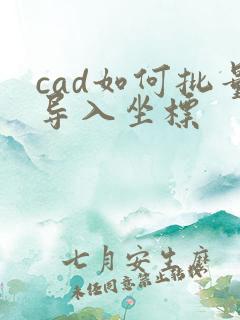 cad如何批量
导入坐标
七月安生麽
未经同意禁止转摸